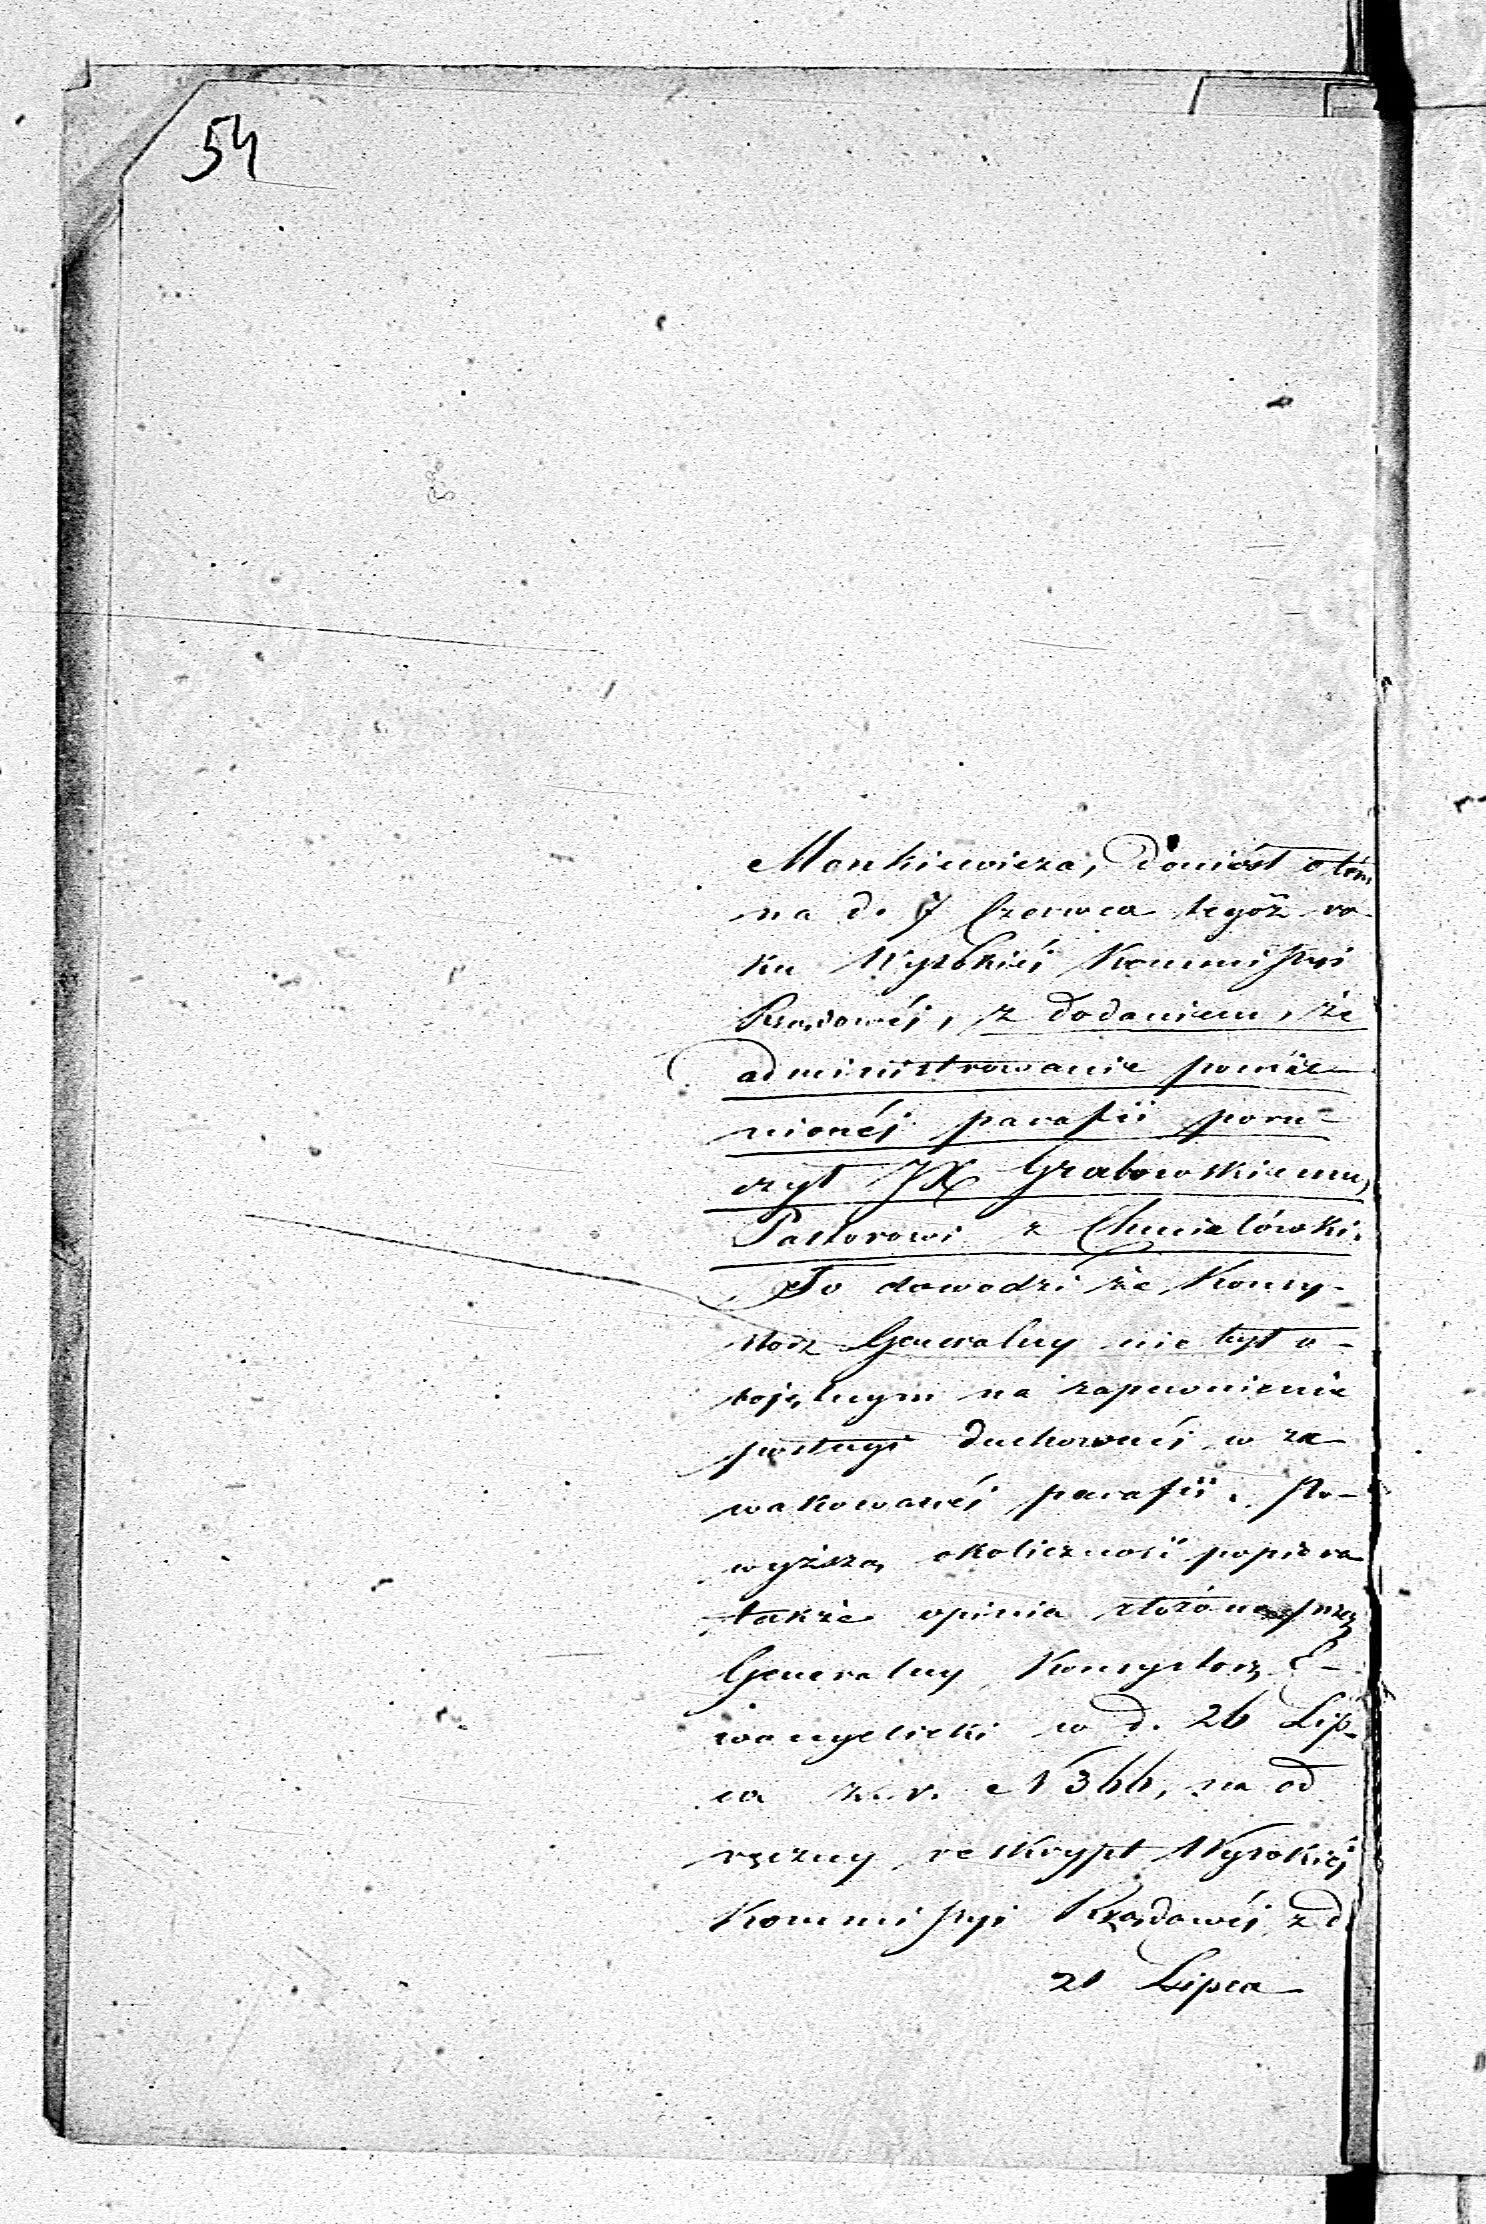 54
Monkiewicza, doniósł o tém
na d. 7 Czerwca tegoż ro-
ku Wysokiéj Kommissyi
Rządowéj, z dodaniem, że
administrowanie pomie-
nionéj parafii poru-
czył JX Grabowskiemu,
Pastorowi z Chmielówki.
To dowodzi że Konsy-
storz Generalny nie był o-
bojętnym na zapewnienie
posługi duchownéj w za-
wakowanéj parafii. Po-
wyższą okoliczność popiera
także opinia złożona przez
Generalny Konsystorz E-
wangelicki w d. 26 Lip-
ca z. r. N 366, na od
ręczny reskrypt Wysokiéj
Kommissyi Rządowéj z d.
21 Lipca